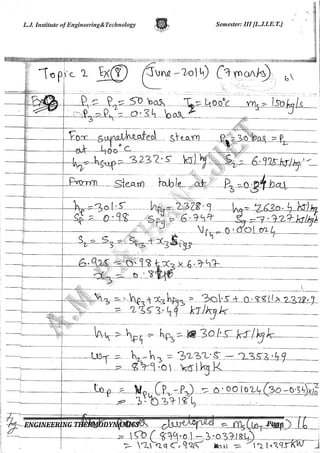 L.J. Institute of Engineering&Technology Semester: III [L.J.I.E.T.]
Topic 2 Ex(8) (June-2014) (7 marks)
Ex(8) P1 = P2 = 50 bar, T2 = 400°c m3 = 150 kg/s
P3 = P4 = 0.34 bar
For superheated steam P2 = 30 bar = P2
at 400°c
h2 = hsup = 3232.5 kJ/kg S2 = 6.925 kJ/kg
From steam table at P3 = 0.34 bar
hf = 301.5 hfg = 2328.9 hg = 2630.4 kJ/kg
Sf = 0.98 Sfg = 6.747 Sg = 7.727 kJ/kgk
Vf4 = 0.001024
S2 = S3 = Sf3 + x3 Sfg3
6.925 = 0.98 + x3 × 6.747
x3 = 0.881
h3 = hf3 + x3 hfg3 = 301.5 + 0.8811 × 2328.9
= 2353.49 kJ/kgk
h4 = hf4 = hf3 = 301.5 KJ/kgk
WT = h2 - h3 = 3232.5 - 2353.49
= 879.01 kJ/kgK
Wp = Vf4 (P2 - P3) = 0.001024 (30 - 0.34)×10²
= 3.037184
ENGINEERING THERMODYNAMICS developed = ms (WT - Wp) 16
= 150 (879.01 - 3.037184)
= 121.395 KW